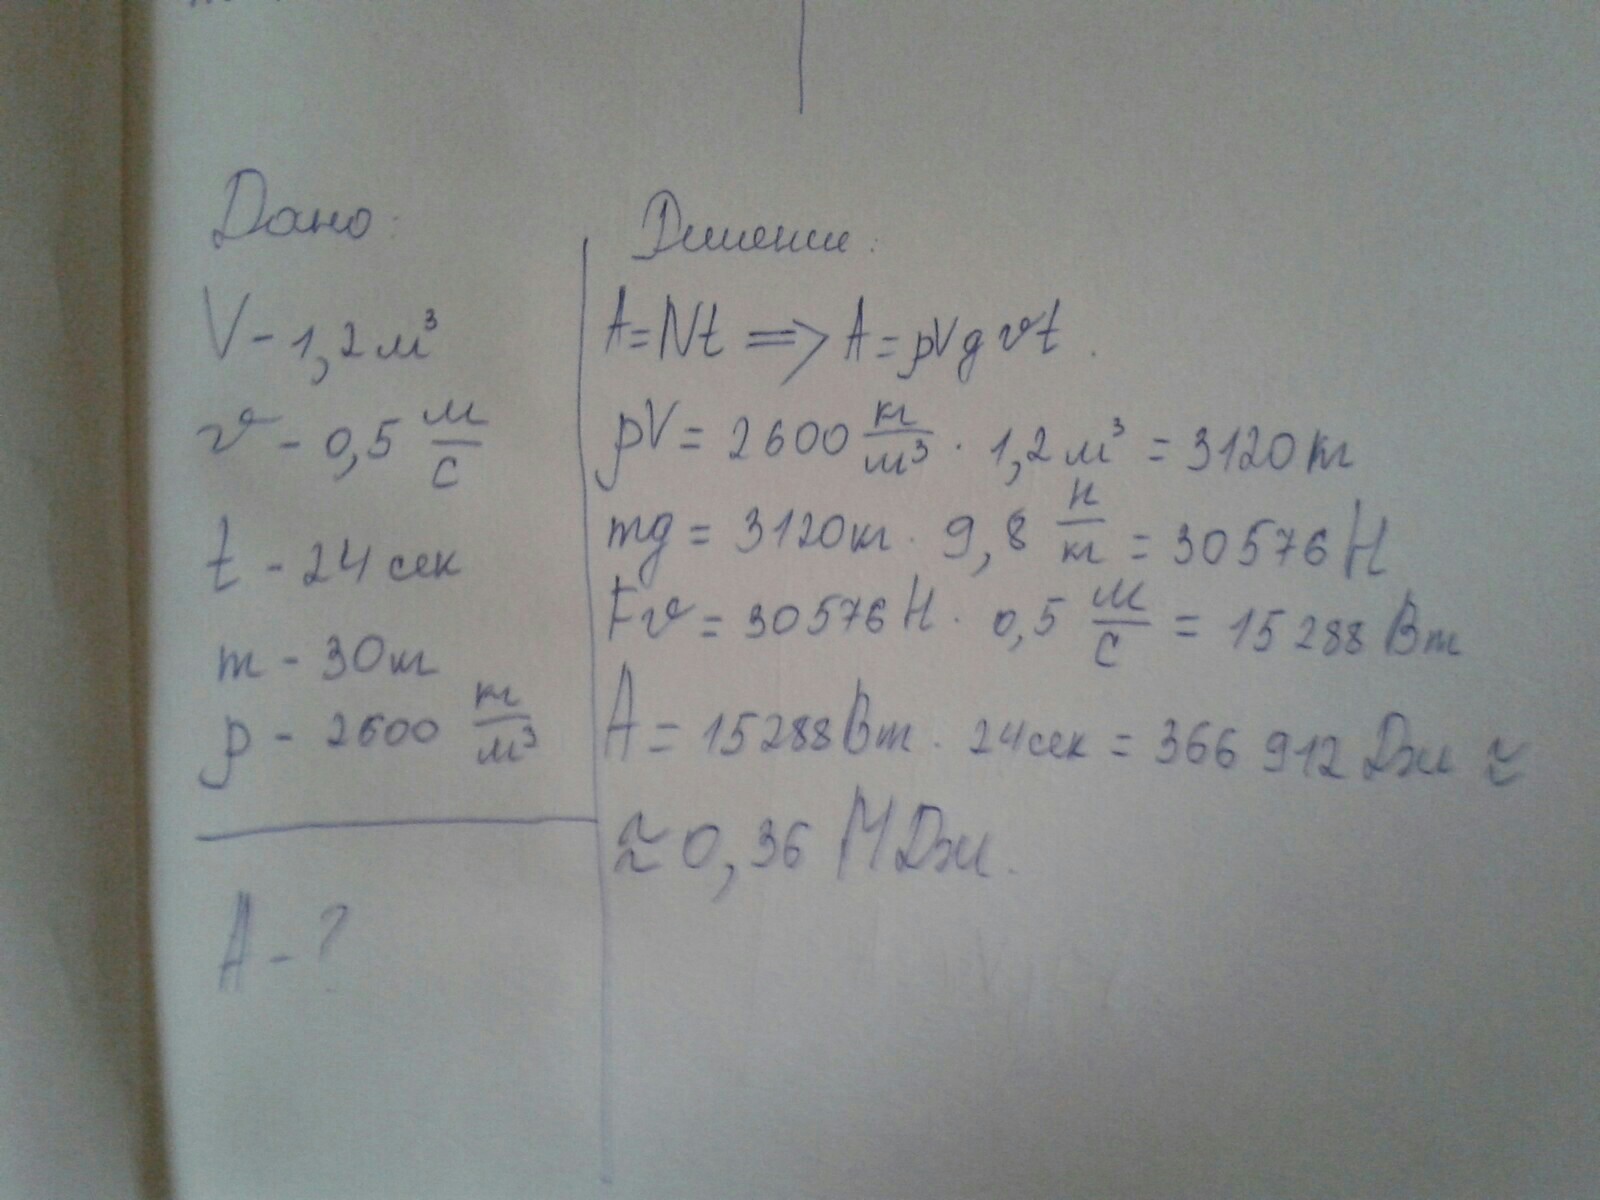 Дано:
V - 1,2 м³
v - 0,5 м/с
t - 24 сек
m - 30 кг
ρ - 2600 кг/м³
A - ?
Решение:
A = Nt => A = ρVgvt.
ρV = 2600 кг/м³ · 1,2 м³ = 3120 кг
mg = 3120 кг · 9,8 н/кг = 30576 Н
Fv = 30576 Н · 0,5 м/с = 15 288 Вт
A = 15288 Вт · 24 сек = 366 912 Дж ≈
≈ 0,36 МДж.